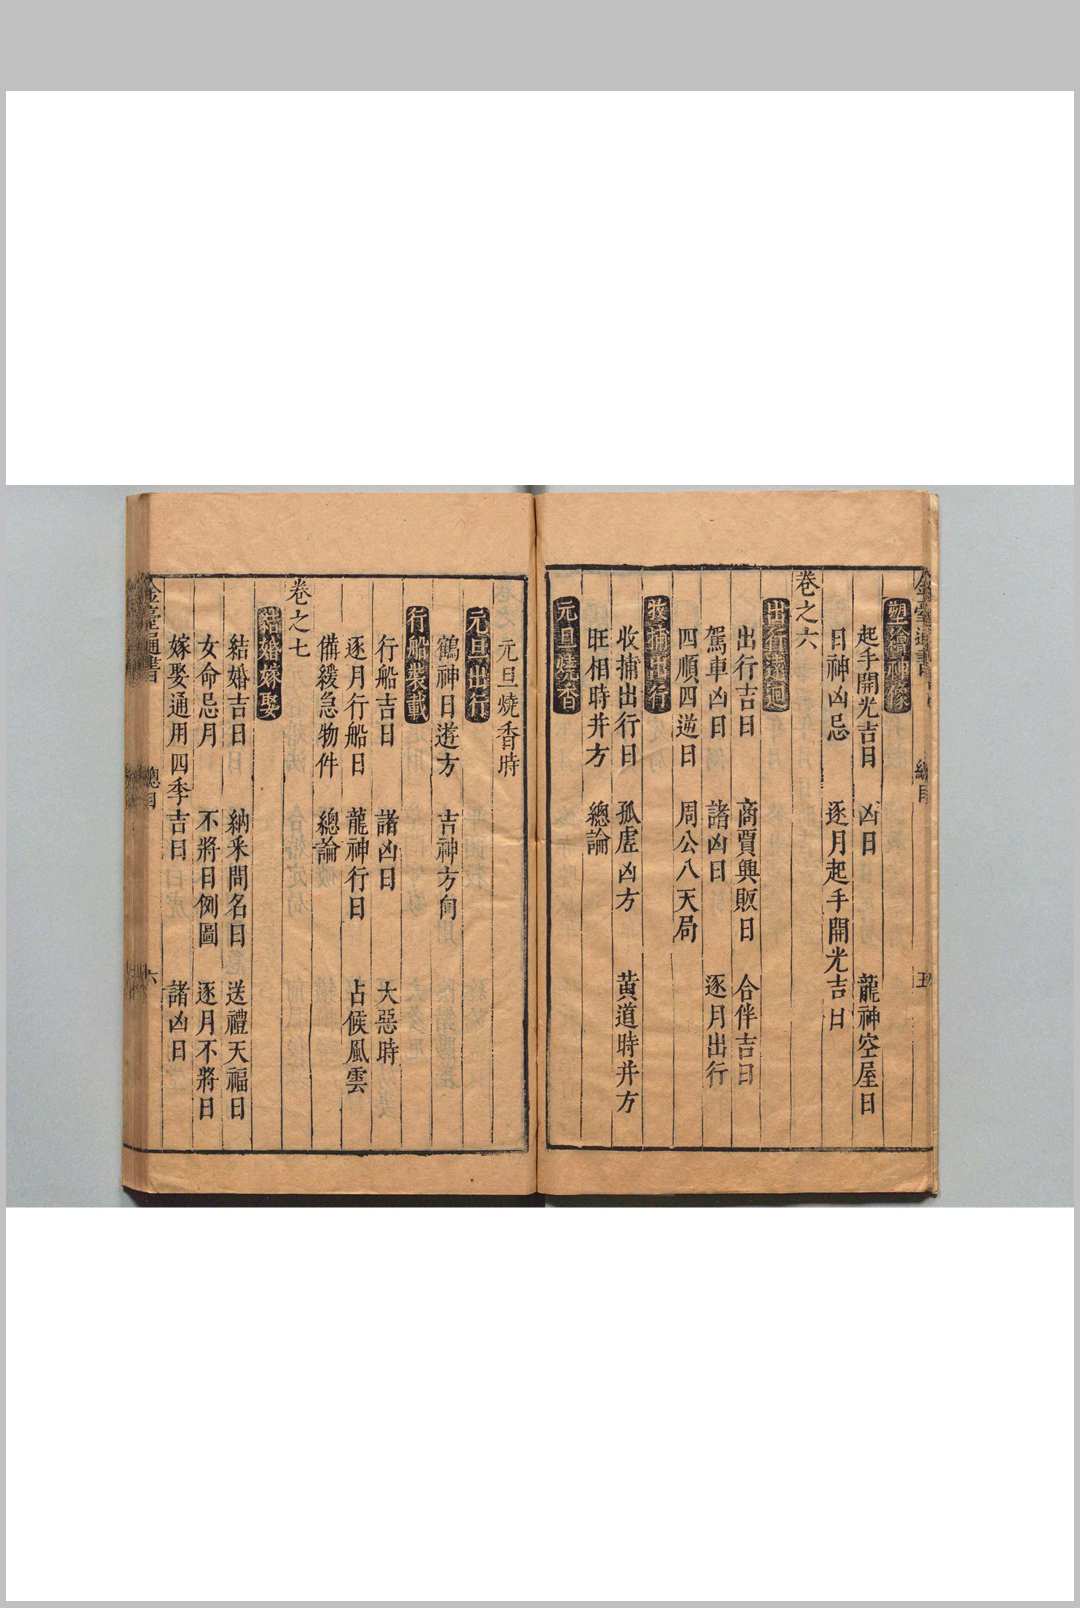 塑繪神像
起手開光吉日　凶日　龍神空屋日
日神凶忌　逐月起手開光吉日
卷之六
出行遠迴
出行吉日　商賈興販日　合伴吉日
駕車凶日　諸凶日　逐月出行
四順四逆日　周公八天局
收捕出行
收捕出行日　孤虛凶方　黃道時并方
旺相時并方　總論
元旦燒香
元旦燒香時
元旦出行
鶴神日遊方　吉神方向
行船裝載
行船吉日　諸凶日　大惡時
逐月行船日　龍神行日　占候風雲
備緩急物件　總論
卷之七
結婚嫁娶
結婚吉日　納釆問名日　送禮天福日
女命忌月　不將日例圖　逐月不將日
嫁娶通用四季吉日　諸凶日
總目
六